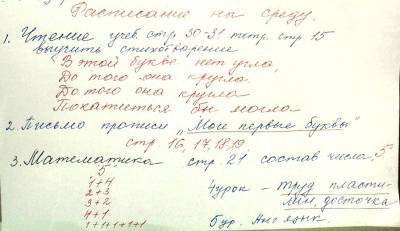 Расписание на среду.
1. Чтение учеб. стр 30-31 тетр. стр. 15
выучить стихотворение
"В этой букве нет угла,
До того она кругла.
До того она кругла
Покатиться бы могла
2. Письмо прописи „Мои первые буквы"
стр. 16, 17, 18, 19.
3. Математика стр. 21 состав числа, 5
5
1+4
2+3
3+2
4+1
1+1+1+1+1
4 урок - труд пласти-
лин, досточка
5 ур. Анг язык.